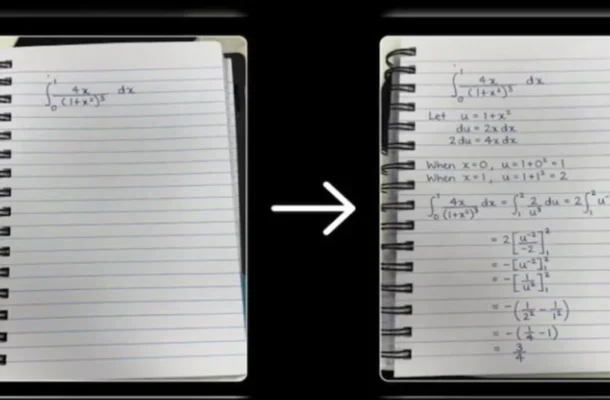 ∫₀¹ 4x/(1+x²)³ dx
∫₀¹ 4x/(1+x²)³ dx
Let u = 1+x²
du = 2x dx
2 du = 4x dx
When x=0, u = 1+0² = 1
When x=1, u = 1+1² = 2
∫₀¹ 4x/(1+x²)³ dx = ∫₁² 2/u³ du = 2∫₁² u⁻
= 2[u⁻²/-2]₁²
= -[u⁻²]₁²
= -[1/u²]₁²
= -(1/2² - 1/1²)
= -(1/4 - 1)
= 3/4